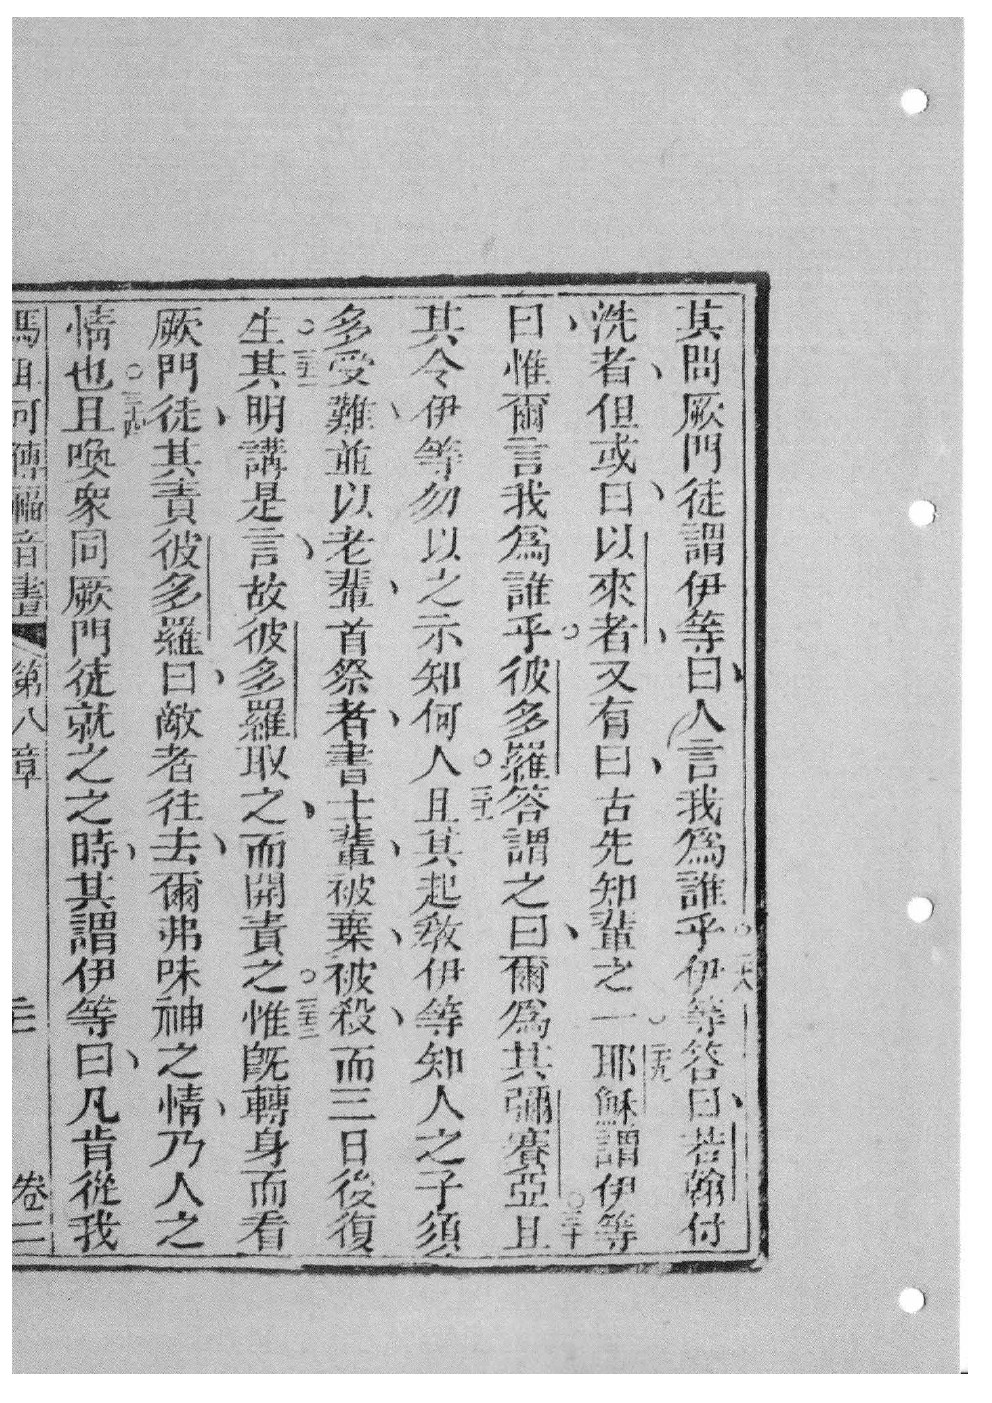 其問厥門徒謂伊等曰人言我爲誰乎○二八伊等答曰若翰付
洗者但或曰以來者又有曰古先知輩之一○二九耶穌謂伊等
曰惟爾言我爲誰乎彼多羅答謂之曰爾爲其彌賽亞○三十且
其令伊等勿以之示知何人○三一且其起教伊等知人之子須
多受難並以老輩首祭者書士輩被棄被殺而三日後復
生○三二其明講是言故彼多羅取之而開責之○三三惟既轉身而看
厥門徒其責彼多羅曰敵者往去爾弗味神之情乃人之
情也○三十四且喚眾同厥門徒就之之時其謂伊等曰凡肯從我
馬耳可傳福音書 第八章 卷二